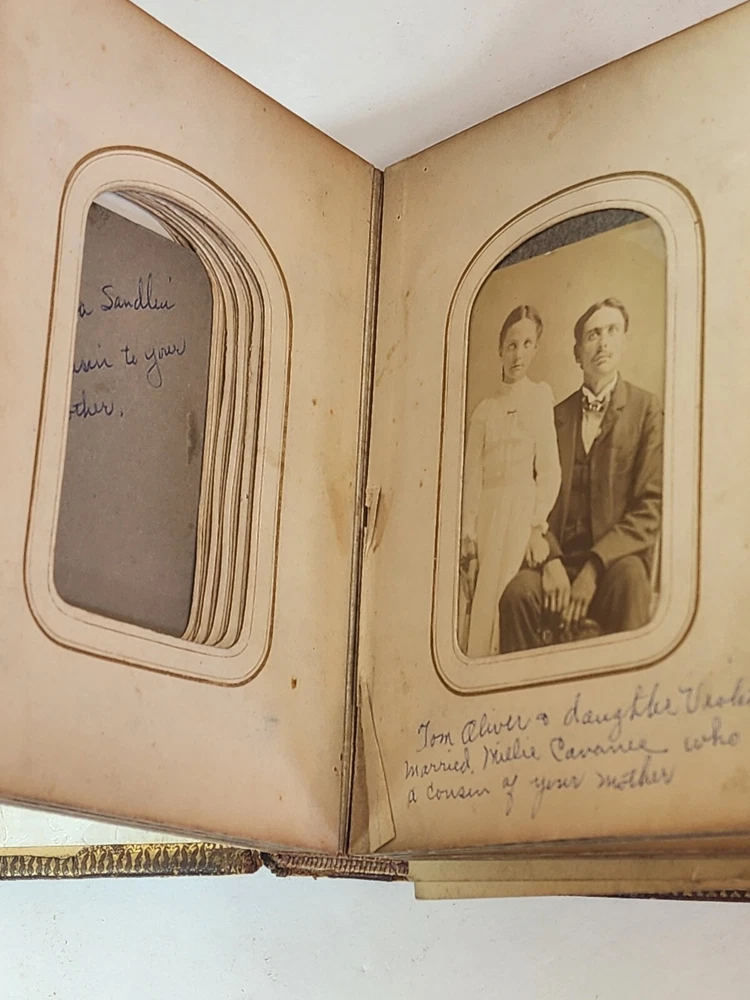 a Sandlin
usin to your
other.
Tom Oliver & daughter Viol
Married Millie Cavanee who
a cousin of your mother